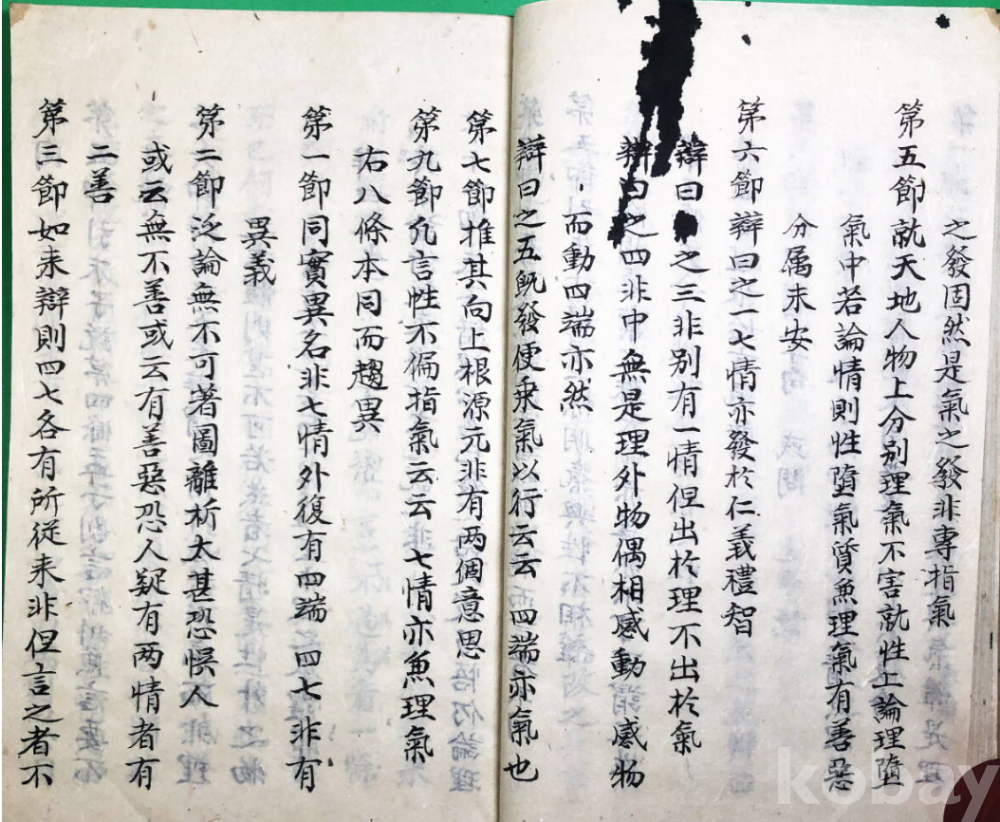 之發固然是氣之發非專指氣
第五節就天地人物上分別理氣不害就性上論理墮
氣中若論情則性墮氣質魚理氣有善惡
分属未安
第六節辯曰之一七情亦發於仁義禮智
辯曰之三非別有一情但出於理不出於氣
辯曰之四非中無是理外物偶相感動感物
而動四端亦然
辯曰之五旣發便乗氣以行云云 四端亦氣也
第七節推其向上根源元非有两個意思
第九節凡言性不偏指氣云云 七情亦魚理氣
右八條本同而趨異
第一節同實異名非七情外復有四端 四七非有
異義
第二節泛論無不可著圖離析太甚恐悞人
或云無不善或云有善惡恐人疑有两情者有
二善
第三節如来辯則四七各有所從来非但言之者不
kobay